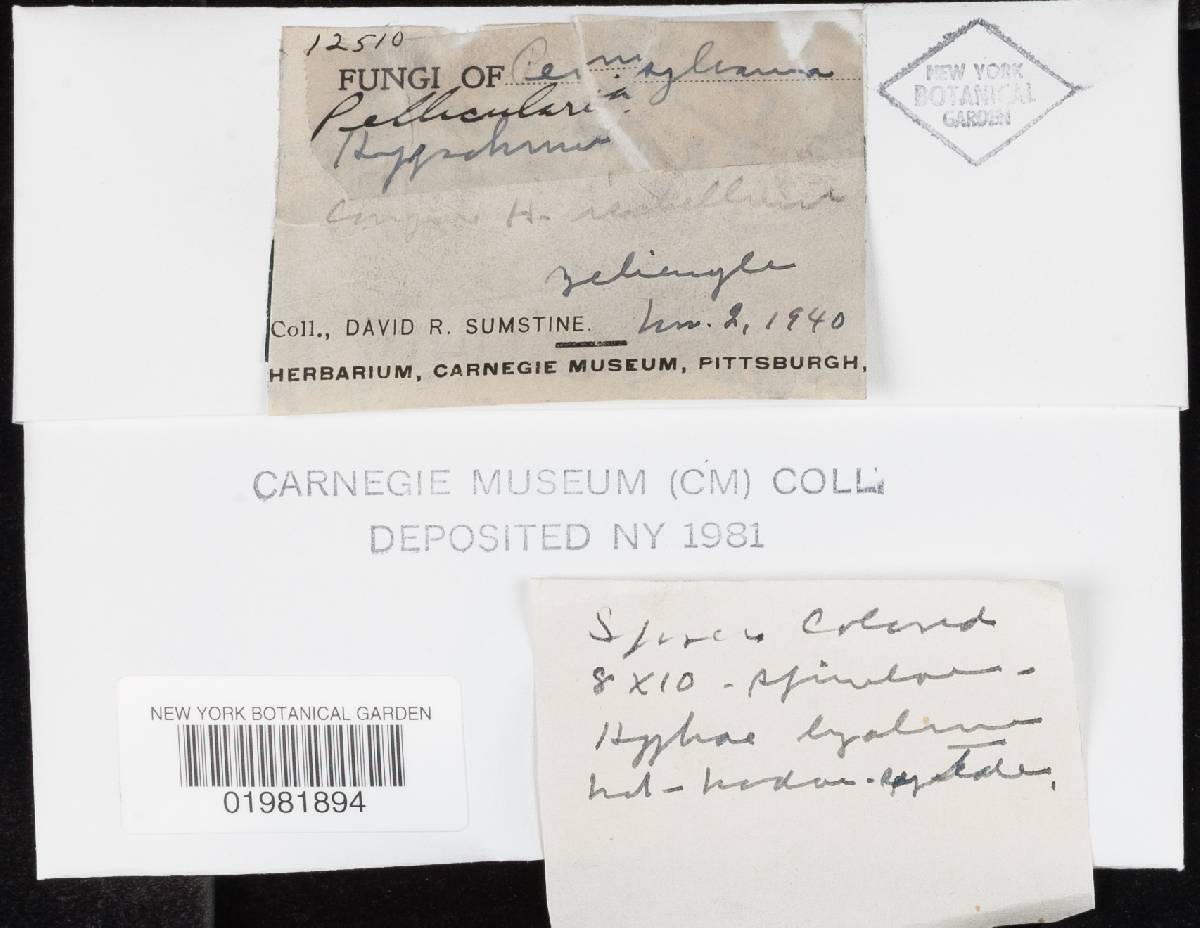 12510
FUNGI OF Pennsylvania
Pellicularia
Hypochnus
H. isabellinus
Zelienople
Coll., DAVID R. SUMSTINE. Nov. 2, 1940
HERBARIUM, CARNEGIE MUSEUM, PITTSBURGH,
NEW YORK
BOTANICAL
GARDEN
CARNEGIE MUSEUM (CM) COLL.
DEPOSITED NY 1981
Spores Colored
8 X 10 - spinulose -
Hyphae hyaline
not - nodose -
NEW YORK BOTANICAL GARDEN
01981894